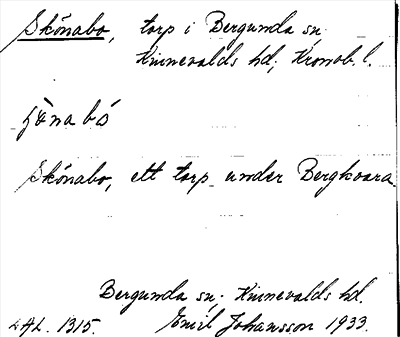 Skönabo, torp i Bergunda sn
Kinnevalds hd, Kronob. l.
Skönabo, ett torp under Bergkvara.
Bergunda sn, Kinnevalds hd.
LAL. 1315. Emil Johansson 1933.